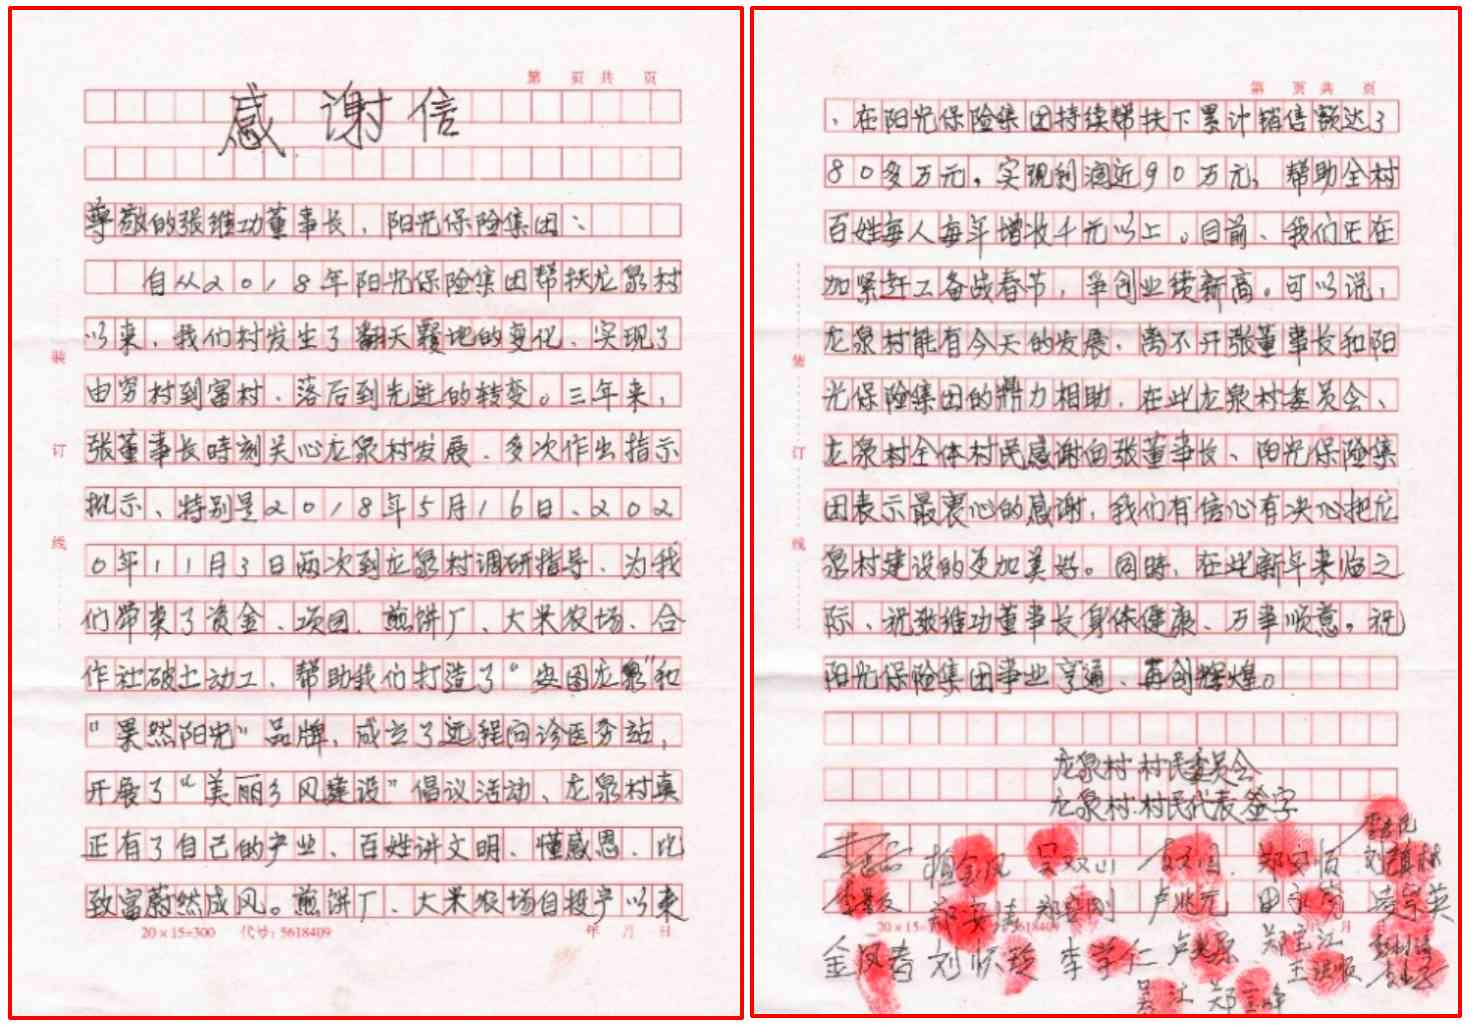 第 页 共 页
感谢信
尊敬的张维功董事长、阳光保险集团：
自从2018年阳光保险集团帮扶龙泉村
以来、我们村发生了翻天覆地的变化、实现了
由穷村到富村、落后到先进的转变。三年来，
张董事长时刻关心龙泉村发展、多次作出指示
批示、特别是2018年5月16日、202
0年11月3日两次到龙泉村调研指导、为我
们带来了资金、项目、煎饼厂、大米农场、合
作社破土动工、帮助我们打造了“安图龙泉”和
“果然阳光”品牌、成立了远程问诊医务站，
开展了“美丽乡风建设”倡议活动、龙泉村真
正有了自己的产业、百姓讲文明、懂感恩、比
致富蔚然成风。煎饼厂、大米农场自投产以来
20×15=300 代号：5618409 年 月 日
装
订
线
第 页 共 页
、在阳光保险集团持续帮扶下累计销售额达了
80多万元。实现利润近90万元，帮助全村
百姓每人每年增收千元以上。目前、我们正在
加紧赶工备战春节，争创业绩新高。可以说，
龙泉村能有今天的发展、离不开张董事长和阳
光保险集团的鼎力相助、在此龙泉村委员会、
龙泉村全体村民感谢向张董事长、阳光保险集
团表示最衷心的感谢，我们有信心有决心把龙
泉村建设的更加美好。同时、在此新年来临之
际、祝敬维功董事长身体健康、万事顺意。祝
阳光保险集团事业亨通、再创辉煌。
龙泉村村民委员会
龙泉村村民代表签字
吴双山
卢兆元
金凤春 刘怀珍 李学仁
郑宝江
吴江
5618409 月 日
装
订
线